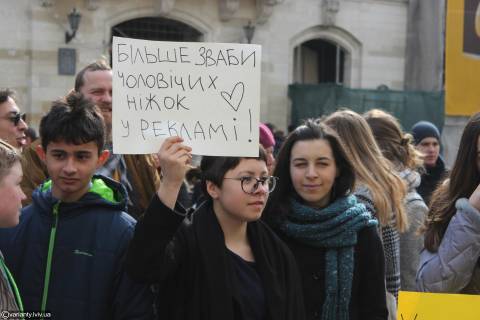 БІЛЬШЕ ЗВАБИ
ЧОЛОВІЧИХ
НІЖОК
У РЕКЛАМІ!
©varianty.lviv.ua